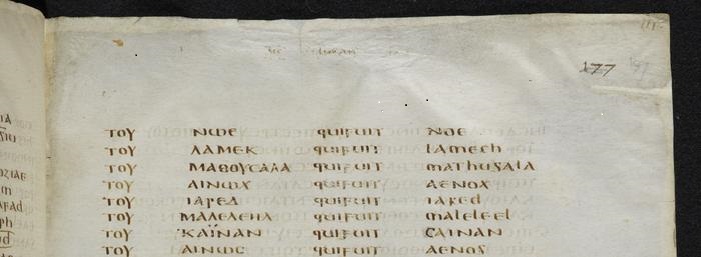 177
ΤΟΥ ΝΩΕ quifuit NOE
ΤΟΥ ΛΑΜΕΚ quifuit lamech
ΤΟΥ ΜΑΘΟΥΣΑΛΑ quifuit mathusala
ΤΟΥ ΑΙΝΩΧ quifuit AENOX
ΤΟΥ ΙΑΡΕΔ quifuit iared
ΤΟΥ ΜΑΛΕΛΕΗΛ quifuit maleleel
ΤΟΥ ΚΑΪΝΑΝ quifuit CAINAN
ΤΟΥ ΑΙΝΩΣ quifuit AENOS